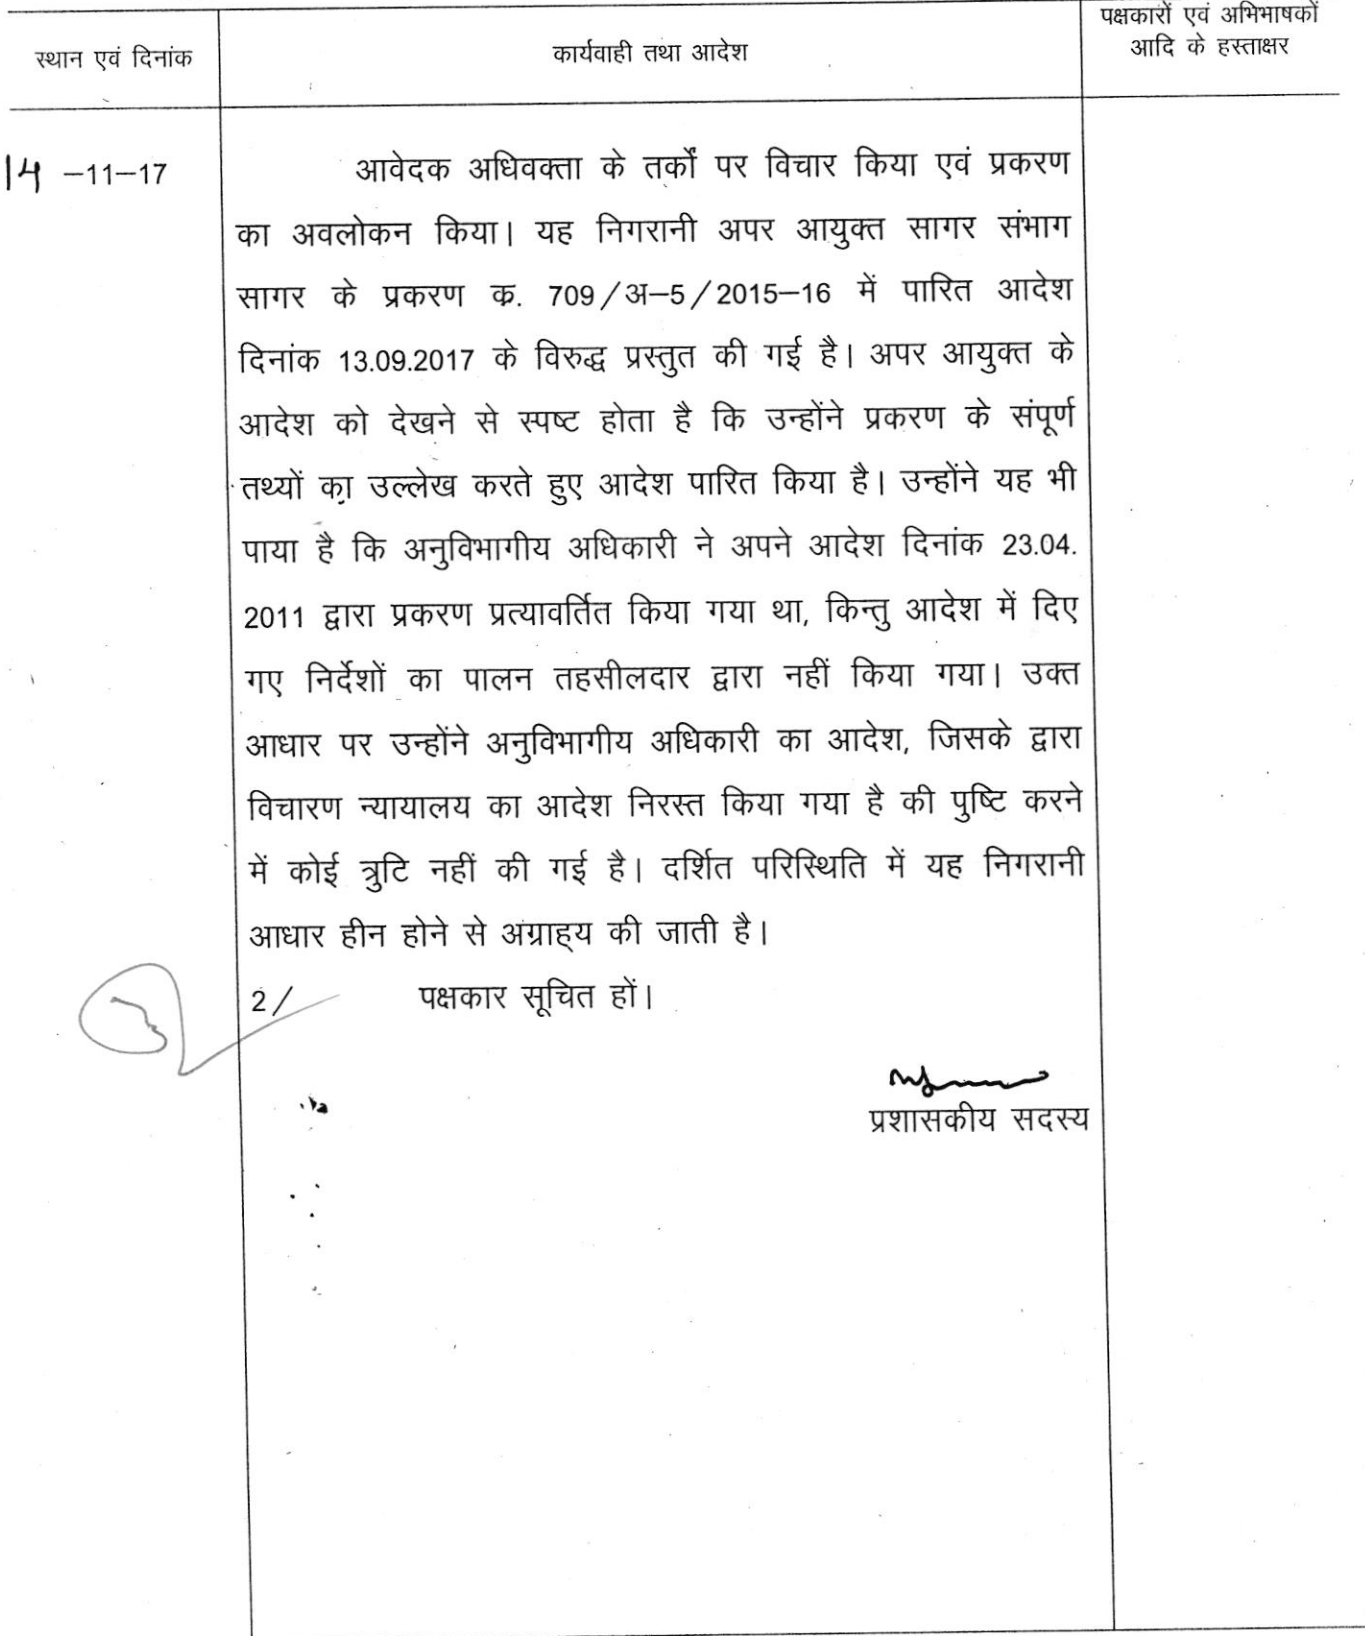 स्थान एवं दिनांक
कार्यवाही तथा आदेश
पक्षकारों एवं अभिभाषकों
आदि के हस्ताक्षर
14 –11–17
आवेदक अधिवक्ता के तर्कों पर विचार किया एवं प्रकरण
का अवलोकन किया। यह निगरानी अपर आयुक्त सागर संभाग
सागर के प्रकरण क्र. 709/अ–5/2015–16 में पारित आदेश
दिनांक 13.09.2017 के विरुद्ध प्रस्तुत की गई है। अपर आयुक्त के
आदेश को देखने से स्पष्ट होता है कि उन्होंने प्रकरण के संपूर्ण
तथ्यों का उल्लेख करते हुए आदेश पारित किया है। उन्होंने यह भी
पाया है कि अनुविभागीय अधिकारी ने अपने आदेश दिनांक 23.04.
2011 द्वारा प्रकरण प्रत्यावर्तित किया गया था, किन्तु आदेश में दिए
गए निर्देशों का पालन तहसीलदार द्वारा नहीं किया गया। उक्त
आधार पर उन्होंने अनुविभागीय अधिकारी का आदेश, जिसके द्वारा
विचारण न्यायालय का आदेश निरस्त किया गया है की पुष्टि करने
में कोई त्रुटि नहीं की गई है। दर्शित परिस्थिति में यह निगरानी
आधार हीन होने से अग्राह्य की जाती है।
2/ पक्षकार सूचित हों।
प्रशासकीय सदस्य